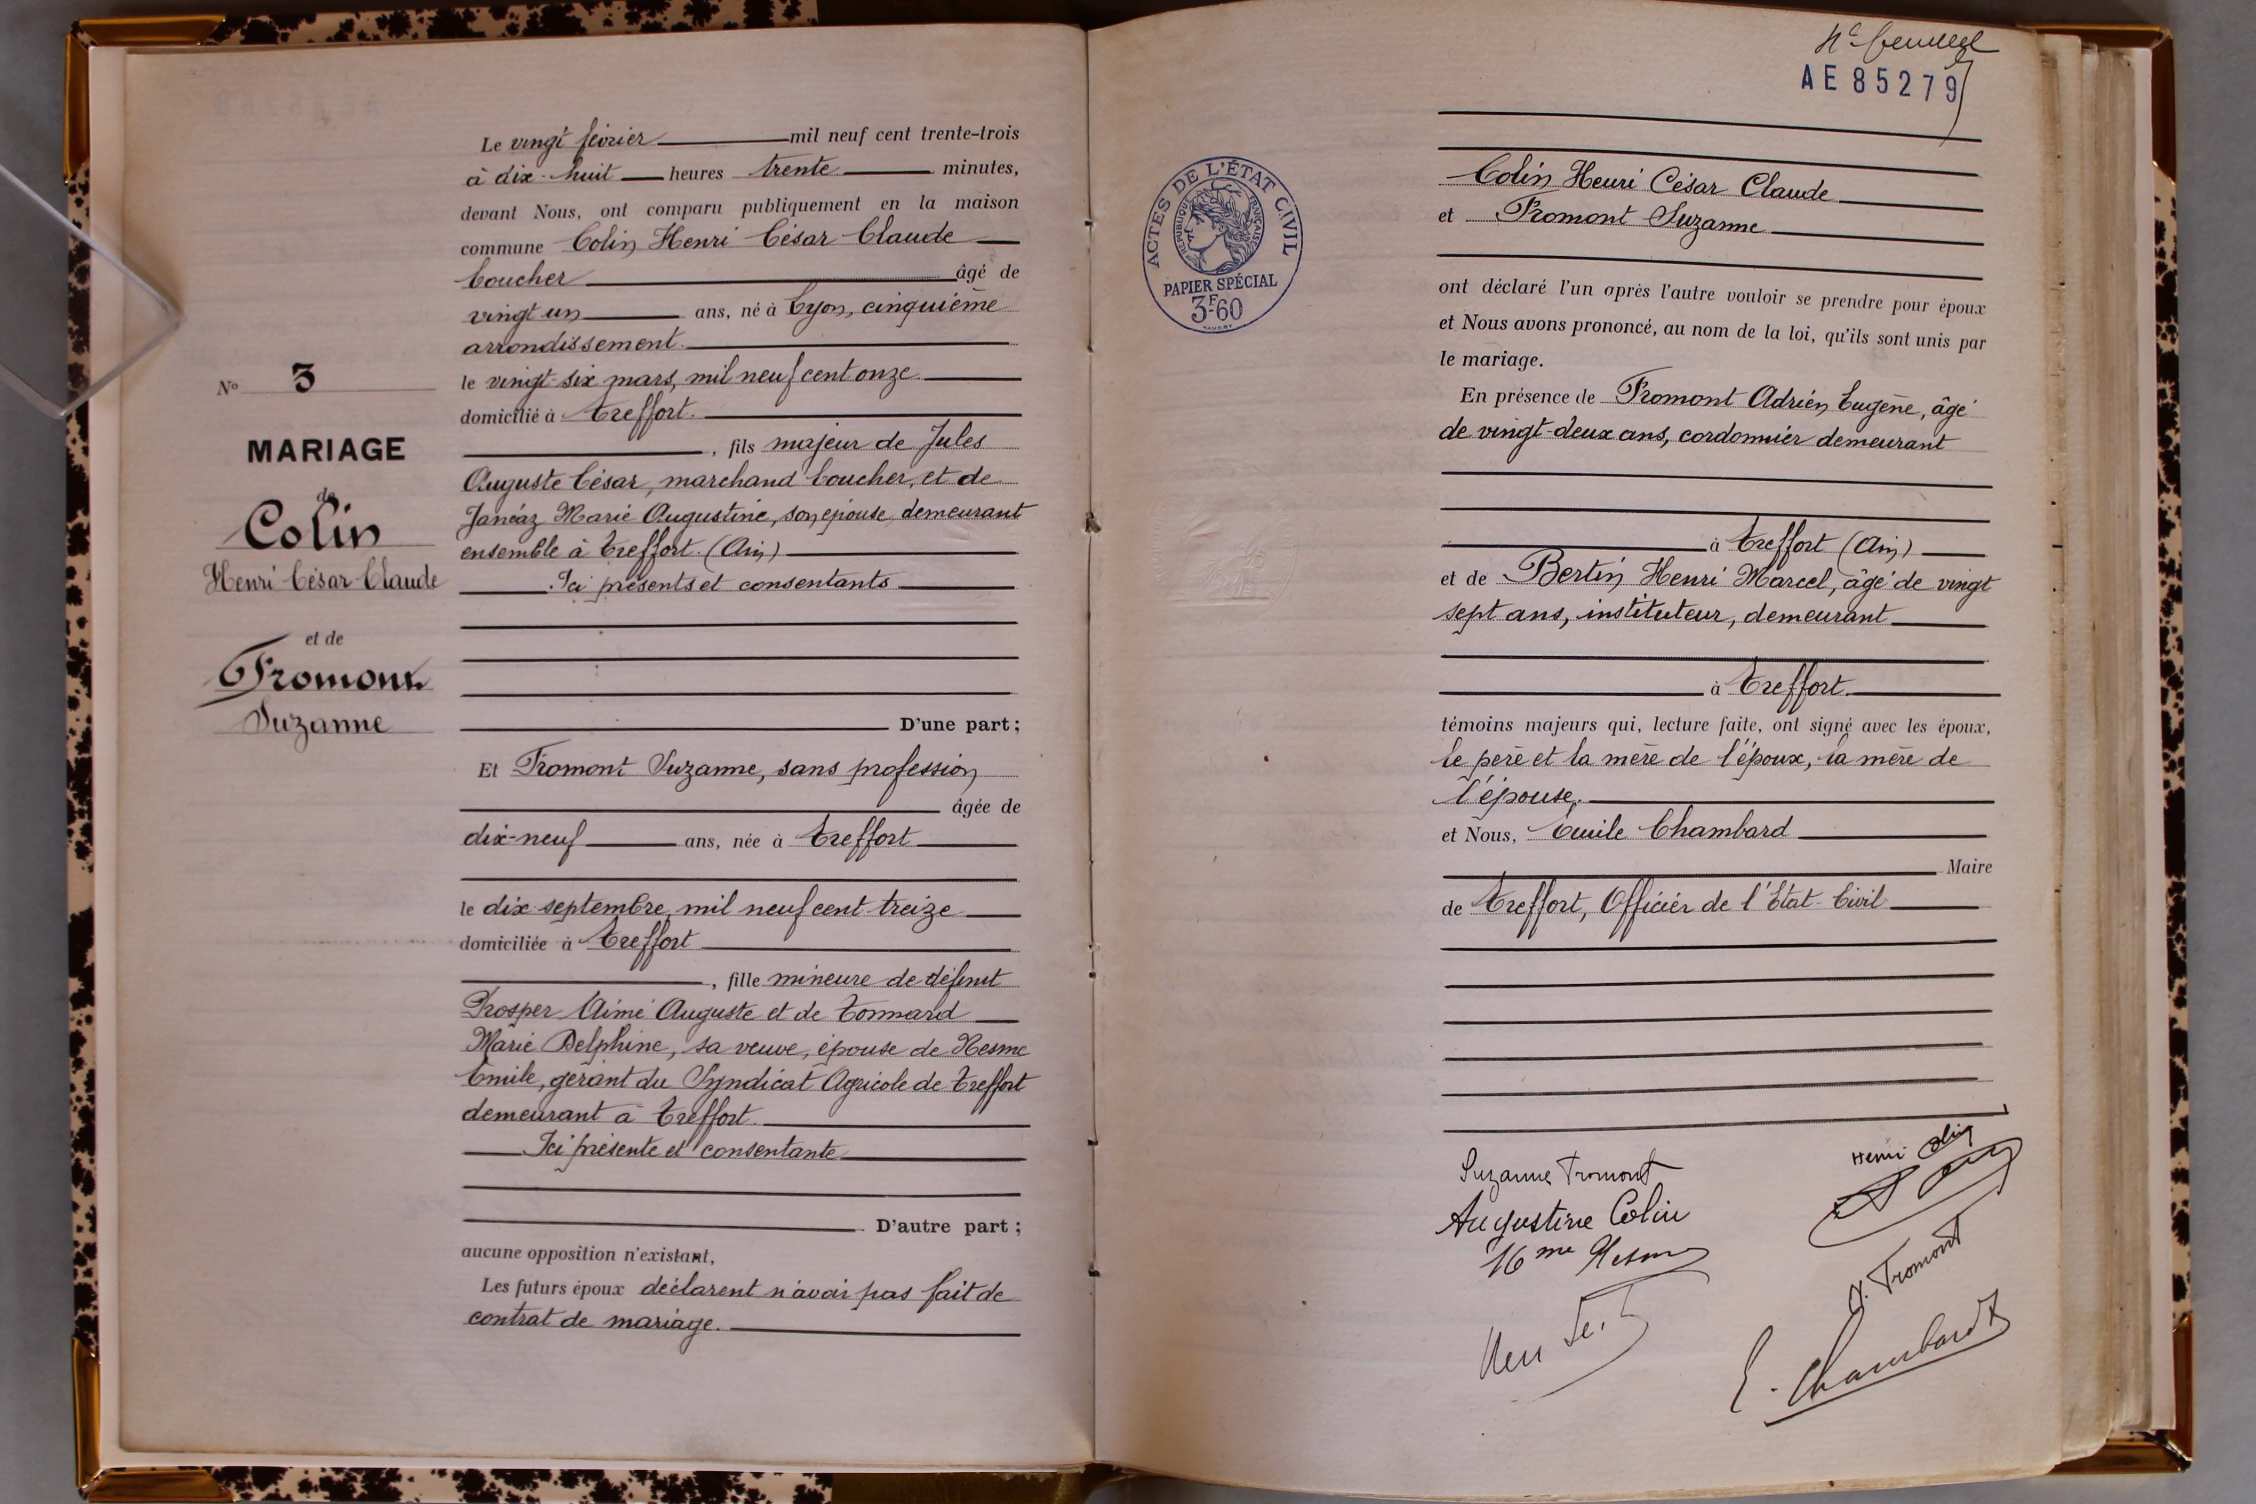 Le vingt février mil neuf cent trente-trois
à dix-huit heures trente minutes,
devant Nous, ont comparu publiquement en la maison
commune Colin Henri César Claude
boucher âgé de
vingt un ans, né à Lyon, cinquième
arrondissement.
le vingt-six mars, mil neuf cent onze.
domicilié à Treffort.
, fils majeur de Jules
Auguste César, marchand boucher, et de
Janéaz Marie Augustine, son épouse, demeurant
ensemble à Treffort. (Ain)
Ici présents et consentants
D'une part ;
Et Fromont Suzanne, sans profession
âgée de
dix-neuf ans, née à Treffort
le dix septembre, mil neuf cent treize
domiciliée à Treffort
, fille mineure de défunt
Prosper Aimé Auguste et de Tonnard
Marie Delphine, sa veuve, épouse de Mesme
Emile, gérant du Syndicat Agricole de Treffort
demeurant à Treffort.
Ici présente et consentante
D'autre part ;
aucune opposition n'existant,
Les futurs époux déclarent n'avoir pas fait de
contrat de mariage.
No 3
MARIAGE
de
Colin
Henri César Claude
et de
Fromont
Suzanne
AE 85279
ACTES DE L'ÉTAT CIVIL
RÉPUBLIQUE FRANÇAISE
PAPIER SPÉCIAL
3F.60
Colin Henri César Claude
et Fromont Suzanne
ont déclaré l'un après l'autre vouloir se prendre pour époux
et Nous avons prononcé, au nom de la loi, qu'ils sont unis par
le mariage.
En présence de Fromont Adrien Eugène, âgé
de vingt-deux ans, cordonnier demeurant
à Treffort (Ain)
et de Bertin Henri Marcel, âgé de vingt
sept ans, instituteur, demeurant
à Treffort.
témoins majeurs qui, lecture faite, ont signé avec les époux,
le père et la mère de l'époux, la mère de
l'épouse.
et Nous, Emile Chambard
Maire
de Treffort, Officier de l'Etat-Civil
Suzanne Fromont
Henri Colin
Augustine Colin
Mme Mesme
A. Fromont
E. Chambard